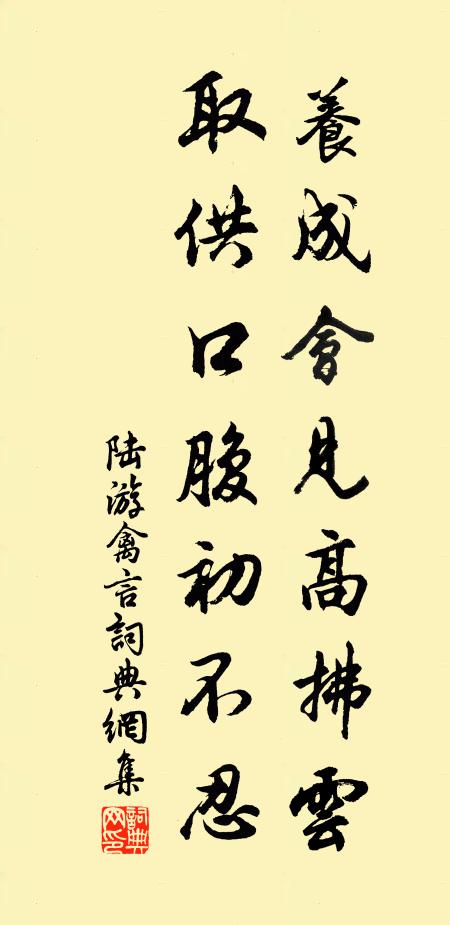 養成會見高拂雲
取供口腹初不忍
陆游禽言詞典網集
詞典網印